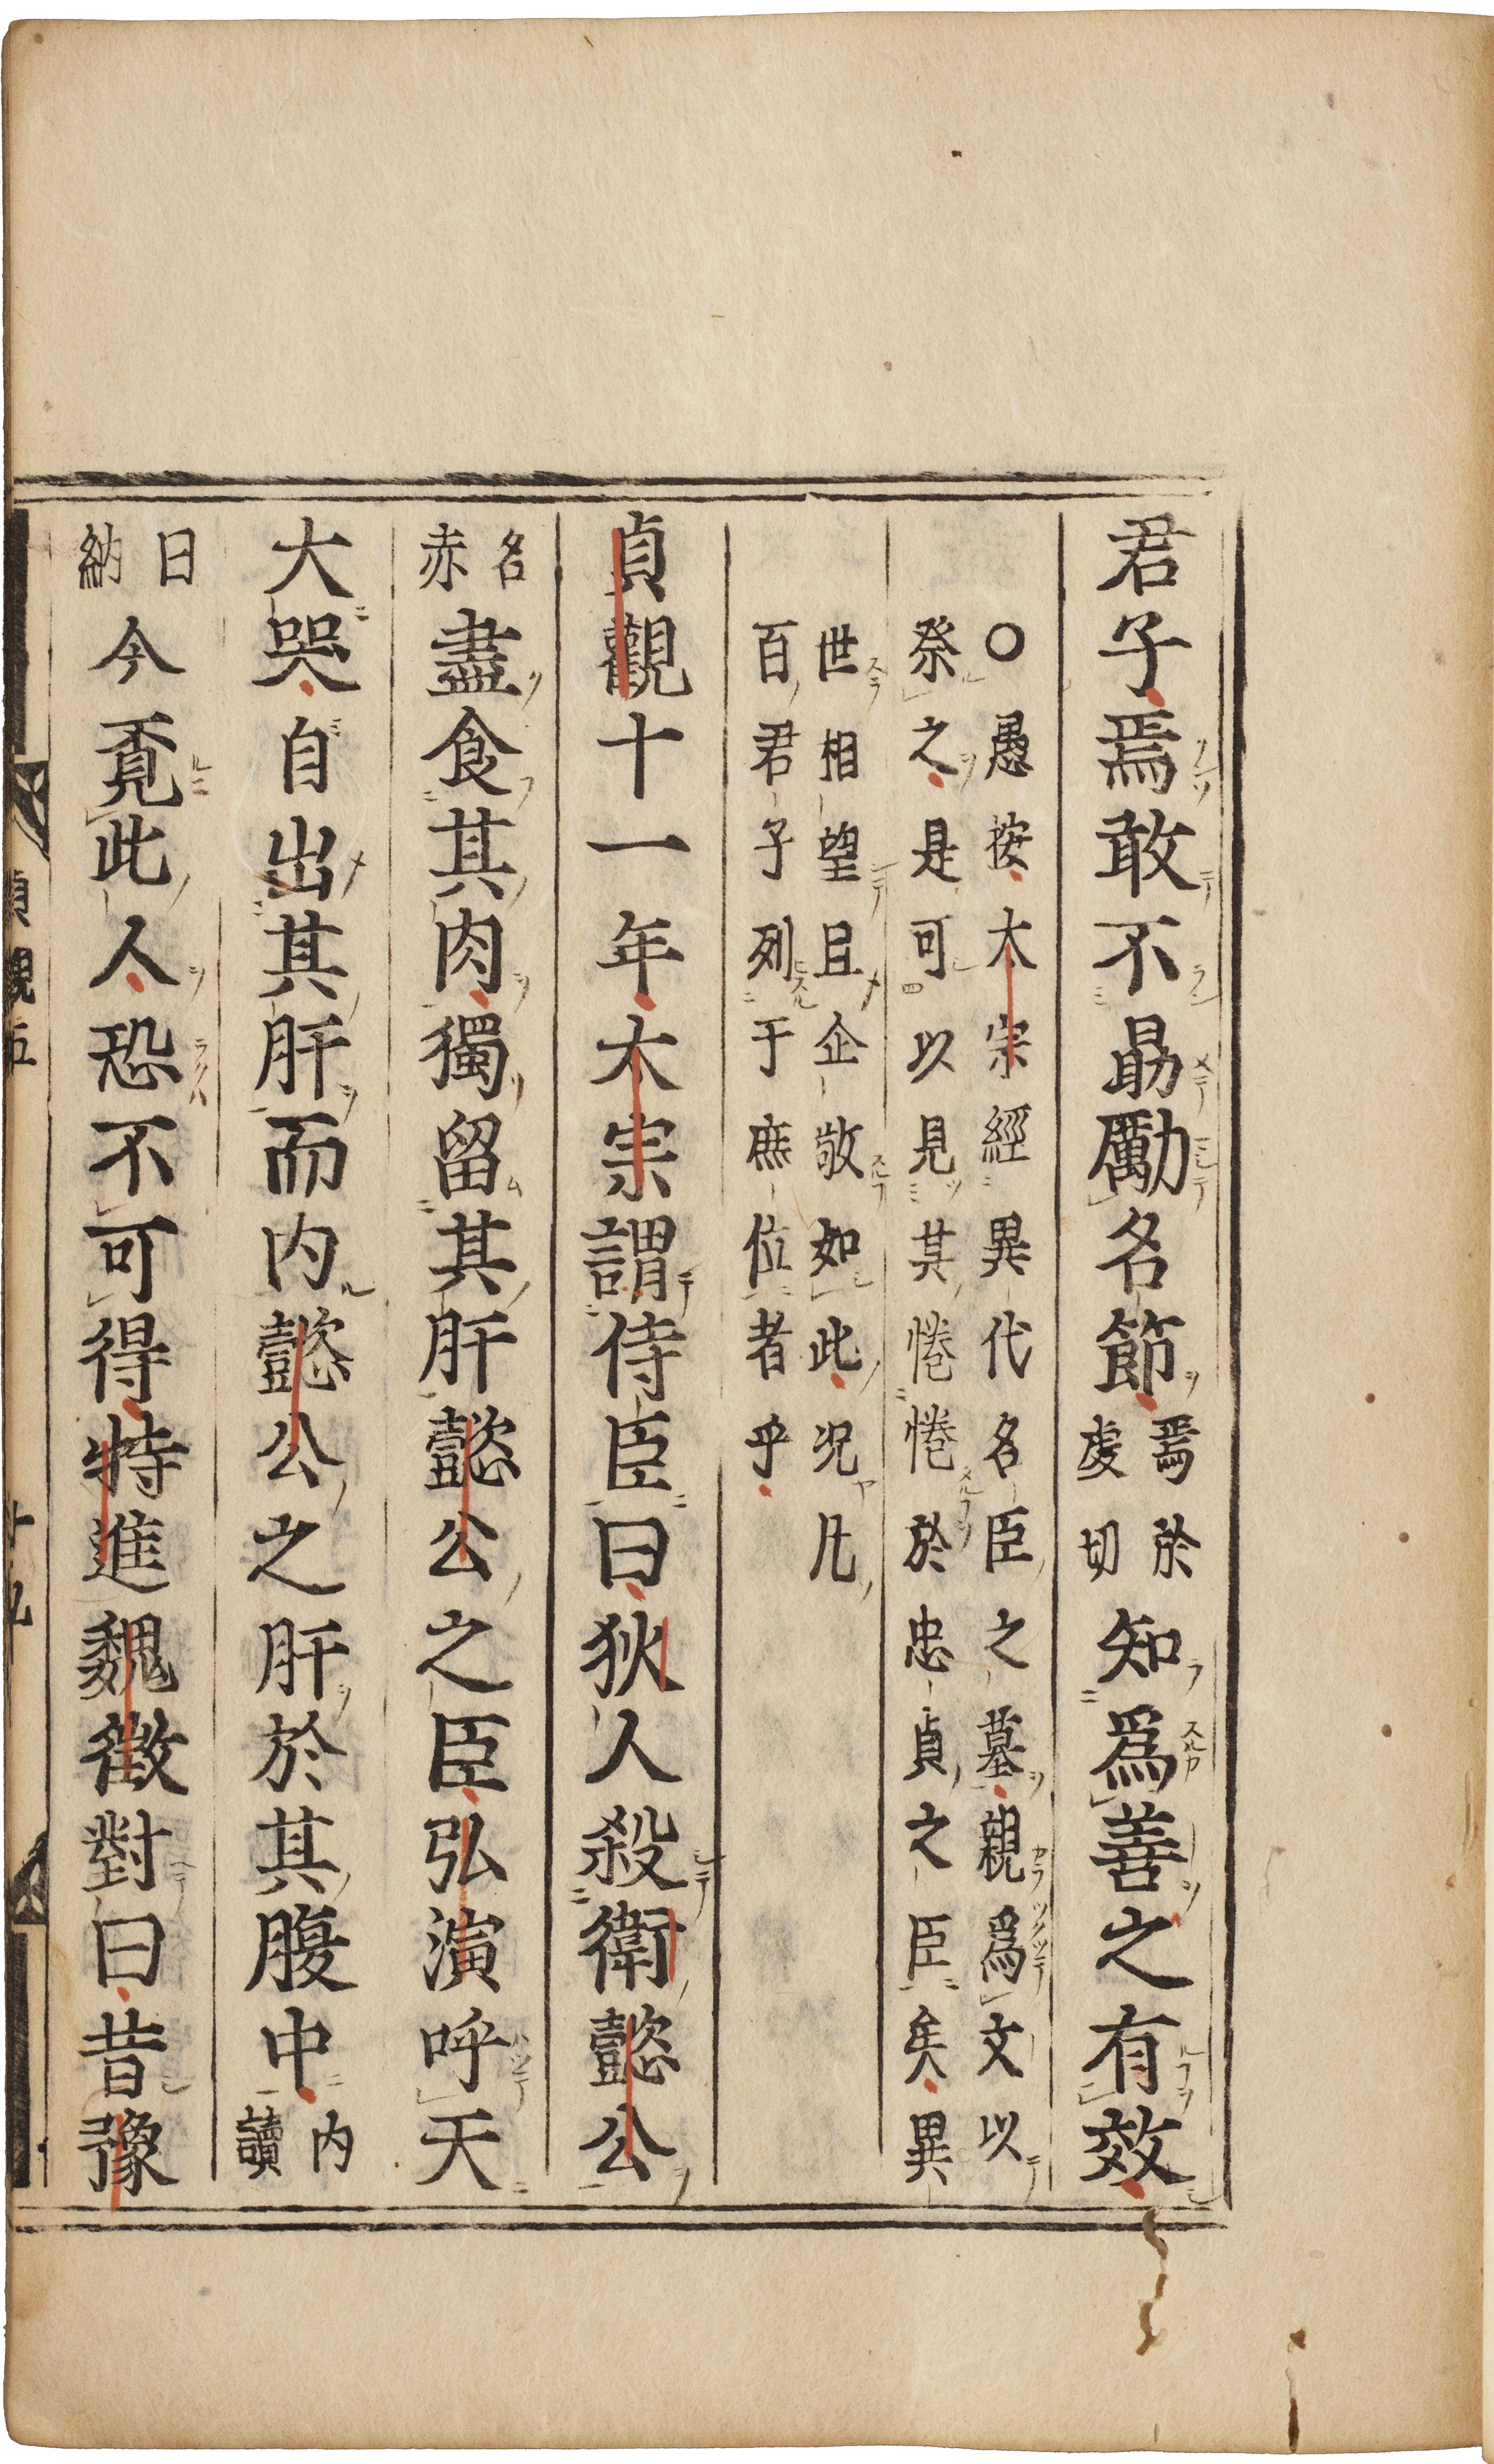 君子焉敢不勗勵名節焉於虔切知爲善之有效
○愚按太宗經異代名臣之墓親爲文以
祭之是可以見其惓惓於忠貞之臣矣異
世相望且企敬如此况凡
百君子列于庶位者乎
貞觀十一年太宗謂侍臣曰狄人殺衛懿公
名赤盡食其肉獨留其肝懿公之臣弘演呼天
大哭自出其肝而内懿公之肝於其腹中内讀
曰納今覔此人恐不可得特進魏徴對曰昔豫
貞觀五
十九